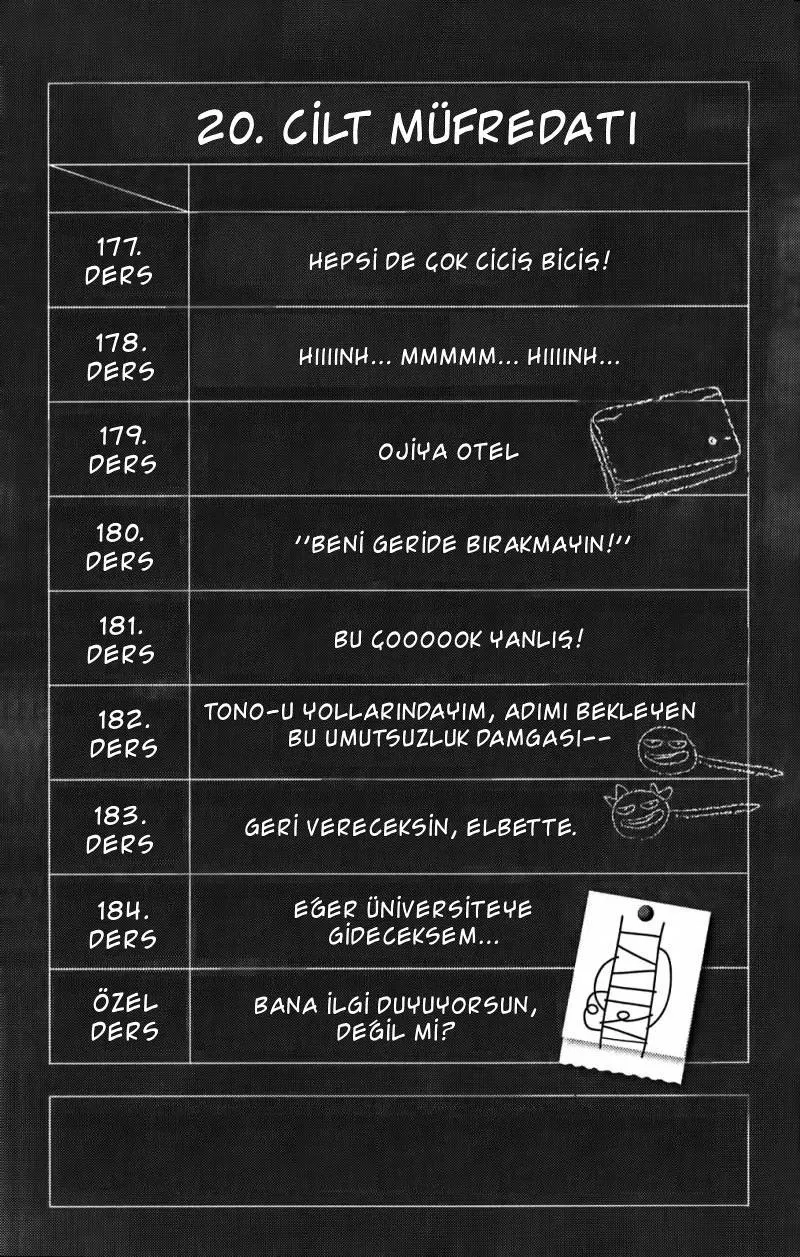 20. CİLT MÜFREDATI
177.
DERS
HEPSİ DE ÇOK CİCİŞ BİCİŞ!
178.
DERS
HIIIINH... MMMMM... HIIIINH...
179.
DERS
OJİYA OTEL
180.
DERS
''BENİ GERİDE BIRAKMAYIN!''
181.
DERS
BU ÇOOOOOK YANLIŞ!
182.
DERS
TONO-U YOLLARINDAYIM, ADIMI BEKLEYEN
BU UMUTSUZLUK DAMGASI--
183.
DERS
GERİ VERECEKSİN, ELBETTE.
184.
DERS
EĞER ÜNİVERSİTEYE
GİDECEKSEM...
ÖZEL
DERS
BANA İLGİ DUYUYORSUN,
DEĞİL Mİ?